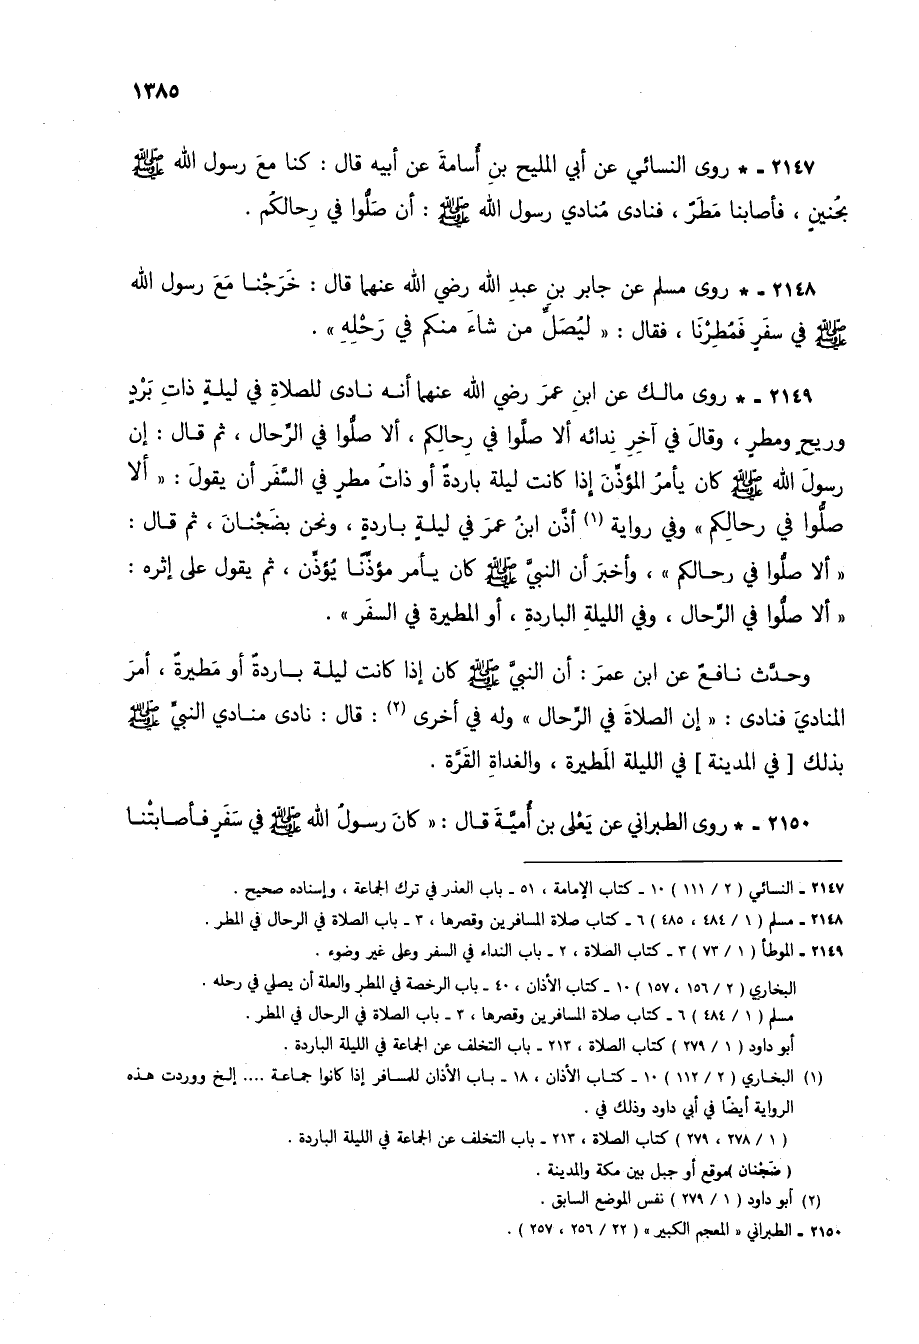 ١٣٨٥
٢١٤٧ ـ * روى النسائي عن أبي المليح بنِ أُسامةَ عن أبيه قال : كنا معَ رسول الله ﷺ
بحُنينٍ ، فأصابنا مَطَرٌ ، فنادى مُنادي رسول الله ﷺ : أن صَلُّوا في رِحالكُم .
٢١٤٨ ـ * روى مسلم عن جابر بنِ عبدِ الله رضي الله عنهما قال : خَرَجْنـا مَعَ رسول الله
ﷺ في سفَرٍ فَمُطِرْنَا ، فقال : « لِيُصَلِّ من شاءَ منكم في رَحْلِهِ » .
٢١٤٩ ـ * روى مالـك عن ابنِ عمرَ رضي الله عنهما أنـه نادى للصلاةِ في ليلةٍ ذاتِ بَرْدٍ
وريحٍ ومطرٍ ، وقالَ في آخرِ نِدائه ألا صلُّوا في رِحالِكم ، ألا صلُّوا في الرِّحال ، ثم قـال : إن
رسولَ الله ﷺ كان يأمرُ المؤذِّنَ إذا كانت ليلة باردةٌ أو ذاتُ مطرٍ في السَّفَر أن يقولَ : « ألا
صلُّوا في رحالِكم » وفي رواية (١) أذَّن ابنُ عمرَ في ليلـةٍ بـاردةٍ ، ونحن بضَجْنـانَ ، ثم قـال :
« ألا صلُّوا في رحـالكم » ، وأخبرَ أن النبيَّ ﷺ كان يـأمر مؤذِّنًـا يُؤذِّن ، ثم يقول على إثره :
« ألا صلُّوا في الرِّحال ، وفي الليلةِ الباردةِ ، أو المطيرة في السفَر » .
وحدَّث نـافـعٌ عن ابن عمرَ : أن النبيَّ ﷺ كان إذا كانت ليلـة بـاردةٌ أو مَطيرةٌ ، أمرَ
المناديَ فنادى : « إن الصلاةَ في الرِّحال » وله في أخرى (٢) : قال : نادى منـادي النبيِّ ﷺ
بذلك [ في المدينة ] في الليلة المَطيرة ، والغداةِ القَرَّة .
٢١٥٠ ـ * روى الطبراني عن يَعْلى بن أُميَّةَ قـال : « كانَ رسولُ الله ﷺ في سَفَرٍ فـأصـابتْنـا
٢١٤٧ ـ النسائي ( ٢ / ١١١ ) ١٠ ـ كتاب الإمامة ، ٥١ ـ باب العذر في ترك الجماعة ، وإسناده صحيح .
٢١٤٨ ـ مسلم ( ١ / ٤٨٤ ، ٤٨٥ ) ٦ ـ كتاب صلاة المسافرين وقصرها ، ٣ ـ باب الصلاة في الرحال في المطر .
٢١٤٩ ـ الموطأ ( ١ / ٧٣ ) ٣ ـ كتاب الصلاة ، ٢ ـ باب النداء في السفر وعلى غير وضوء .
البخاري ( ٢ / ١٥٦ ، ١٥٧ ) ١٠ ـ كتاب الأذان ، ٤٠ ـ باب الرخصة في المطر والعلة أن يصلي في رحله .
مسلم ( ١ / ٤٨٤ ) ٦ ـ كتاب صلاة المسافرين وقصرها ، ٣ ـ باب الصلاة في الرحال في المطر .
أبو داود ( ١ / ٢٧٩ ) كتاب الصلاة ، ٢١٣ ـ باب التخلف عن الجماعة في الليلة الباردة .
(١) البخـاري ( ٢ / ١١٢ ) ١٠ ـ كتـاب الأذان ، ١٨ ـ بـاب الأذان للمسـافر إذا كانوا جمـاعـة .... إلـخ ووردت هـذه
الرواية أيضًا في أبي داود وذلك في .
( ١ / ٢٧٨ ، ٢٧٩ ) كتاب الصلاة ، ٢١٣ ـ باب التخلف عن الجماعة في الليلة الباردة .
( ضَجْنان ) موقع أو جبل بين مكة والمدينة .
(٢) أبو داود ( ١ / ٢٧٩ ) نفس الموضع السابق .
٢١٥٠ ـ الطبراني « المعجم الكبير » ( ٢٢ / ٢٥٦ ، ٢٥٧ ) .